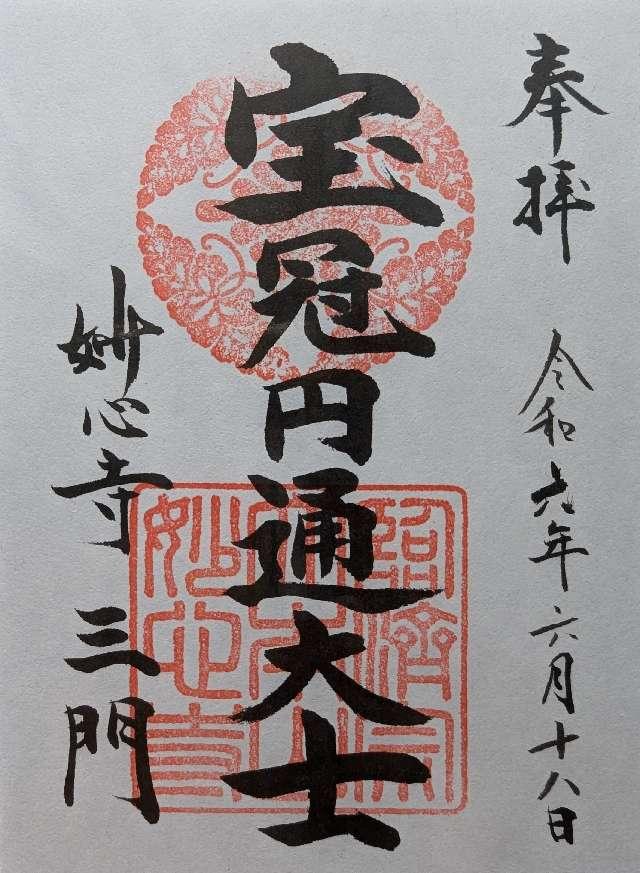 奉拝 令和六年六月十八日
宝冠円通大士
妙心寺 三門
臨済宗
大本山
妙心寺